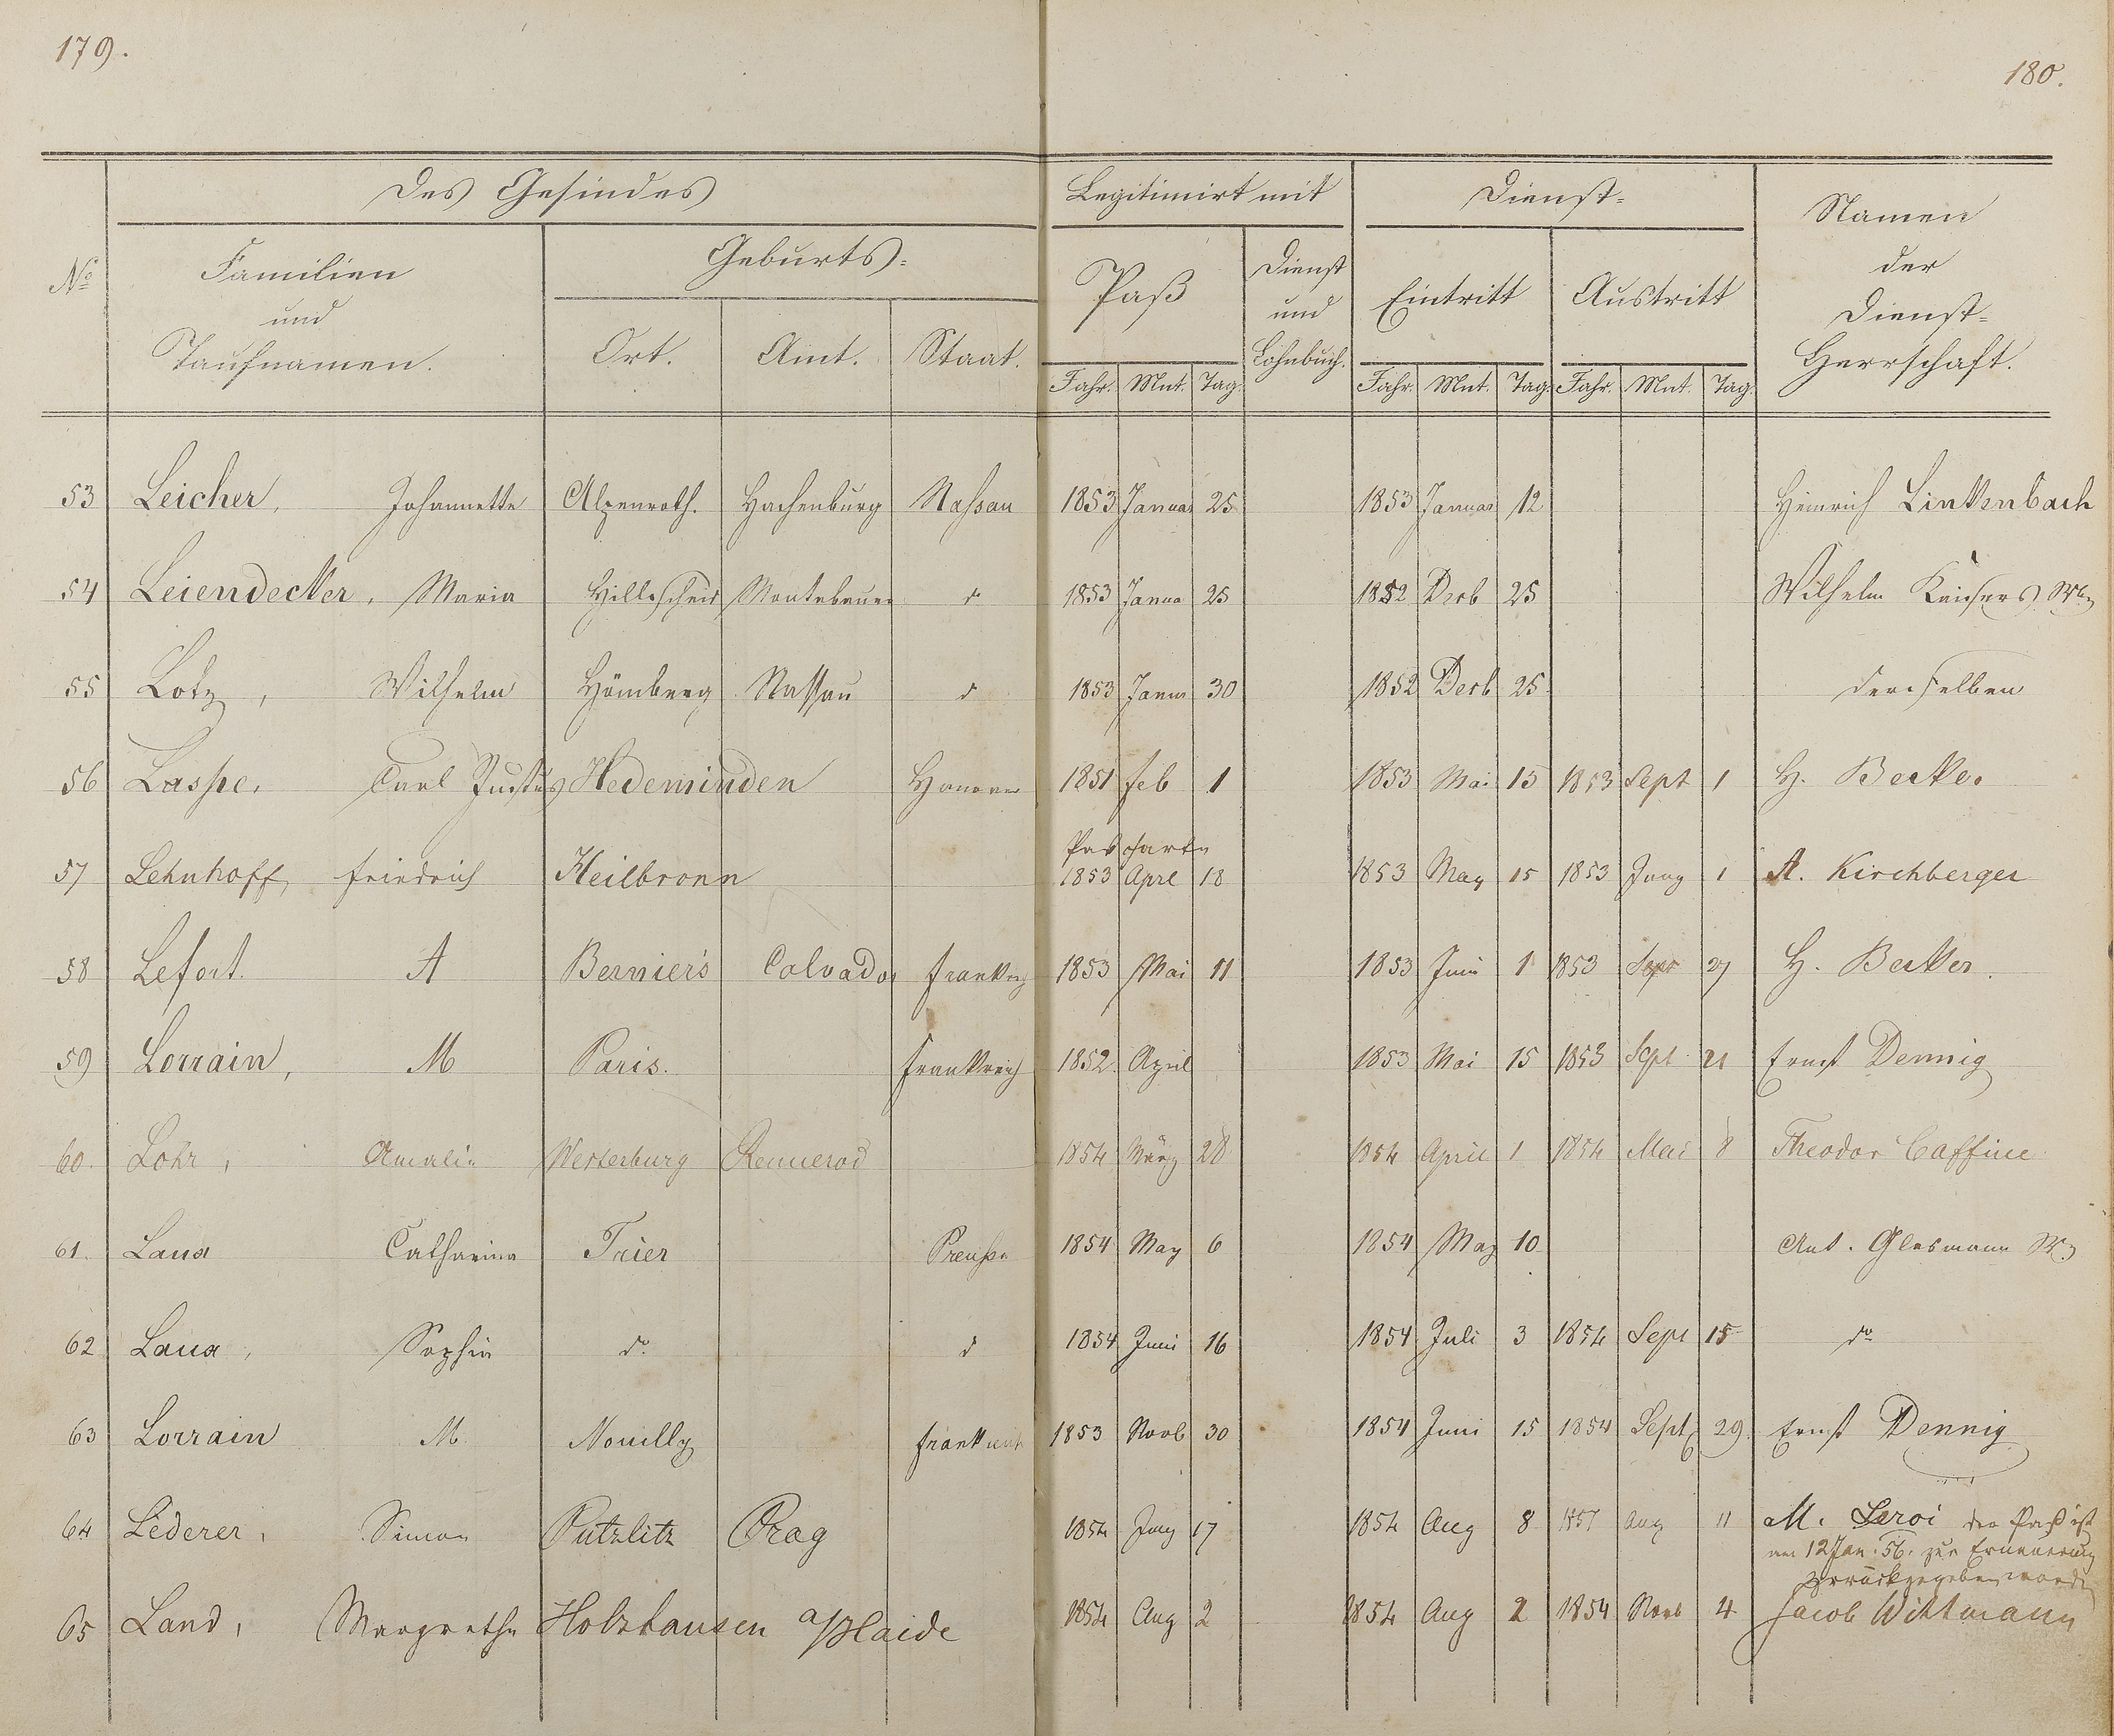 179.
180.
Des Gesindes
Legitimirt mit
Dienst-
Namen der Dienst-Herrschaft.
No
Familien und Taufnamen.
Geburts-
Ort. Amt. Staat.
Paß
Dienst und Lohnbuch.
Eintritt
Austritt
Jahr. Mnt. Tag. Jahr. Mnt. Tag. Jahr. Mnt. Tag.
53 Leicher, Johannette Alpenroth. Hachenburg Nassau 1853 Januar 25 1853 Januar 12 Heinrich Linkenbach
54 Leiendecker, Maria Hillscheid Montabaur d 1853 Janua 25 1852 Decb 25 Wilhelm Kaisers
55 Lotz, Wilhelm Hömberg Nassau d 1853 Janua 30 1852 Decb 25 derselben
56 Laspe, Carl Justus Hedeminden Hanover 1851 Feb 1 1853 Mai 15 1853 Sept 1 H. Becker
Paskarte
57 Lehnhoff, Friedrich Heilbronn 1853 Aprl 18 1853 May 15 1853 Juny 1 A. Kirchberger
58 Lefort. A Bernier's Calvados Frankrg 1853 Mai 11 1853 Juni 1 1853 Sept 27 H. Becker.
59 Lorrain, M Paris. Frankreich 1852 April 1853 Mai 15 1853 Sept 21 Ernst Dennig
60. Lohr, Amalie Westerburg Rennerod 1854 März 28 1854 April 1 1854 Mai 8 Theodor Caffiue
61. Laua Catharina Trier Preußen 1854 May 6 1854 May 10 Ant. Glasmann W.
62 Laua, Sophie do d 1854 Juni 16 1854 Juli 3 1854 Sept 15 do
63 Lorrain M. Nouilly Frankreich 1853 Novb 30 1854 Juni 15 1854 Sept 29. Ernst Dennig
64 Lederer, Simon Putzlitz Prag 1854 July 17 1854 Aug 8 1857 Aug 11 M. Leroi der Paß ist
am 12 Jan. 56. zur Erneuerung
zurückgegeben worden
65 Land, Margrethe Holzhausen a/Haide 1854 Aug 2 1854 Aug 2 1854 Novb 4 Jacob Wittmann